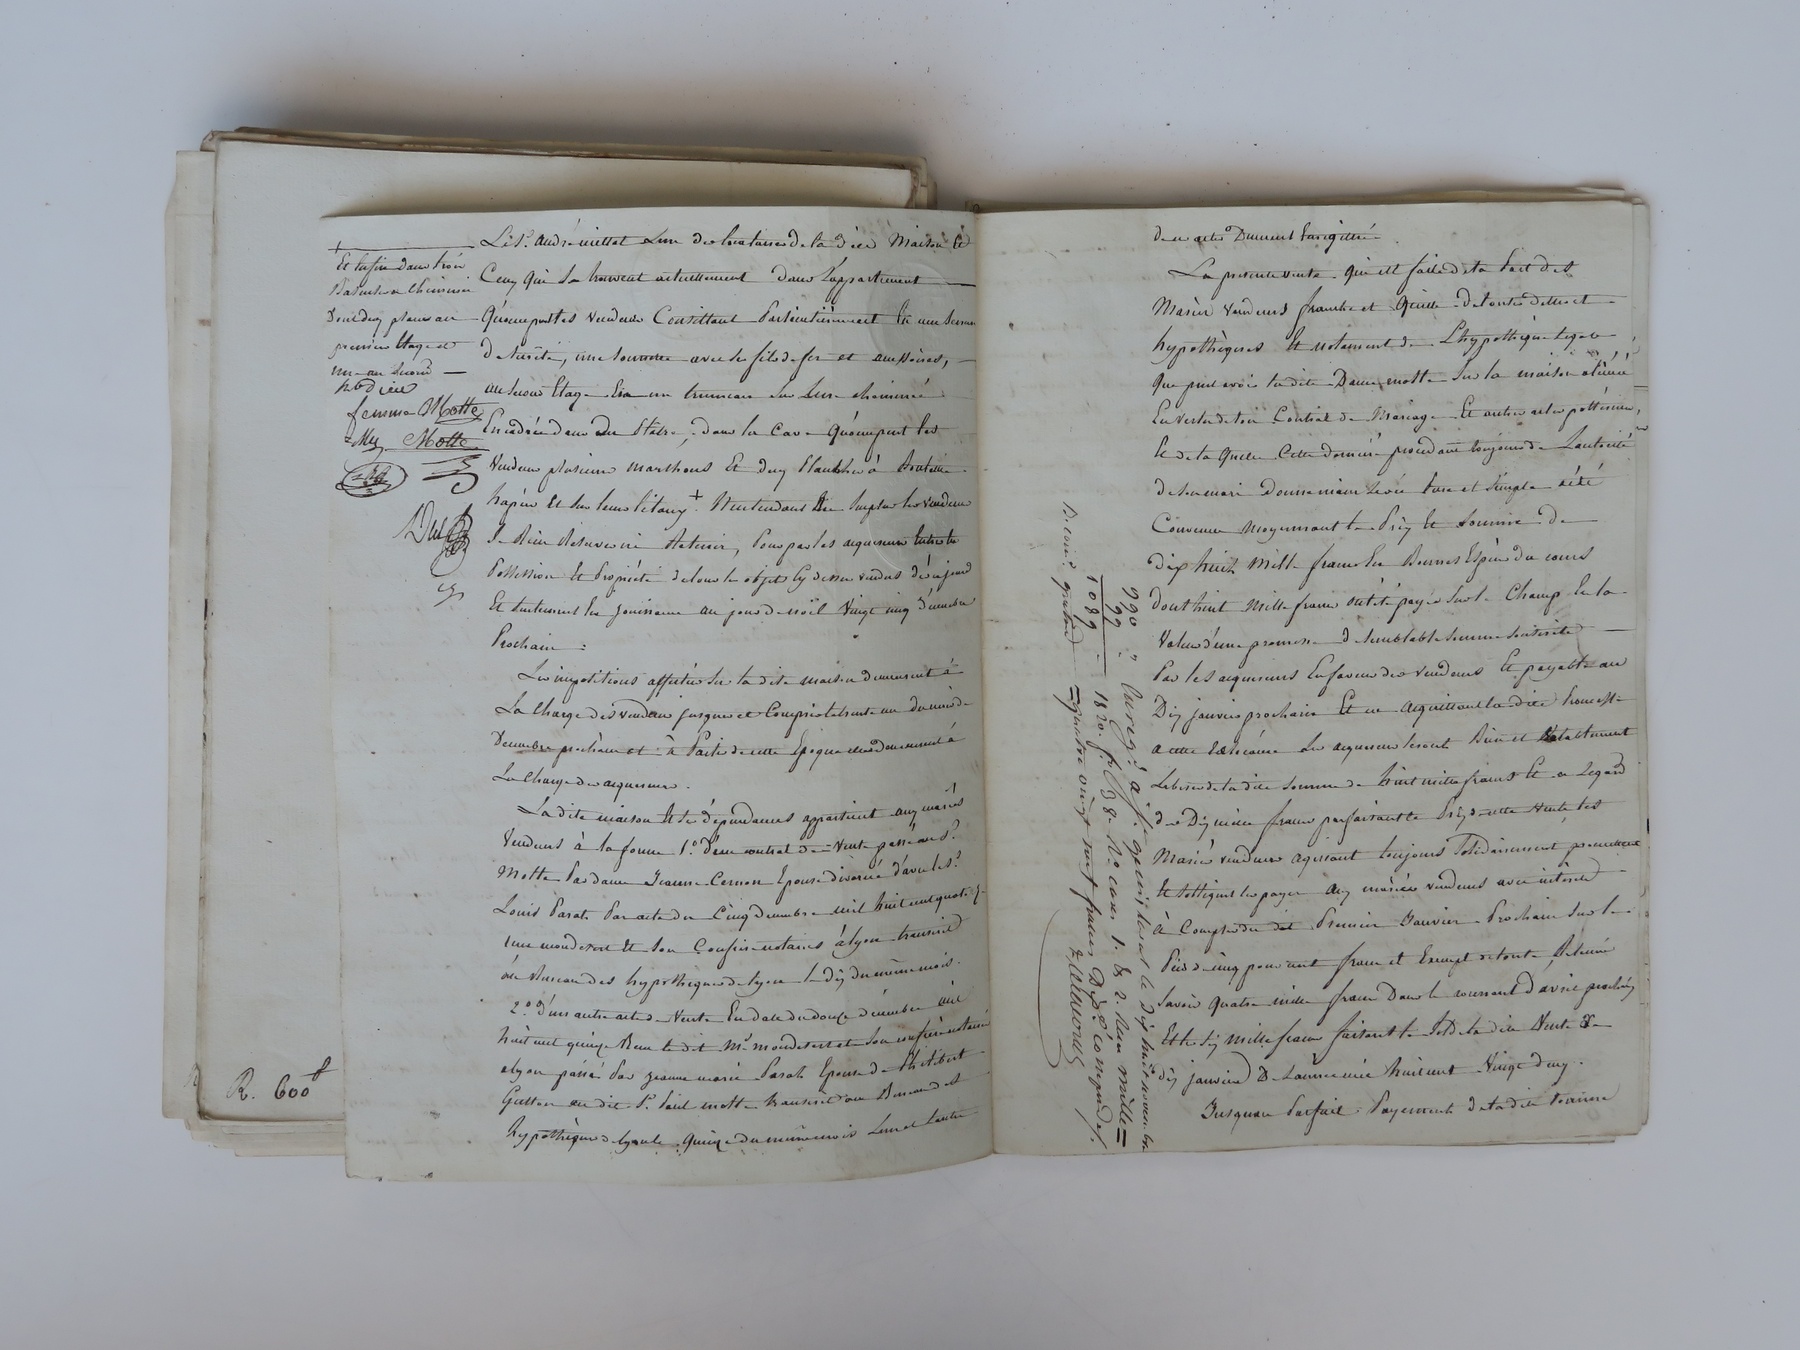 Et enfin dans trois
premier Etage et
un au Second
femme Motte
Motte
Le Sr. André millet L'un des locataires de la dite Maison Et
Ceux qui se trouvent actuellement dans L'appartement
Qu'occupent les vendeurs Consistant Particulièrement En une Serrure
de Sureté, une Sonnette avec ses fils de fer et
au Second Etage En un trumeau sur Une cheminée
Encadrée dans du Platre, dans la Cave Qu'occupent les
Vendeurs plusieurs marchons Et deux Planches à Bouteille
Papiers Et Sur Leurs litaux + N'entendant Les Susplus les Vendeurs
Se Rien Réserver ni Retenir, Pour par les acquereurs Entrer en
Possession Et Propriété de tous les objets Cy dessus vendus dès ce jour
Et Seulement En jouissance au jour de noël Vingt cinq Décembre
Prochain :
Les impositions affectées Sur la dite maison demeurent à
La Charge des vendeurs jusques et Compris le trente un du mois de
Décembre prochain et à Partir de cette Epoque elles demeurent à
La Charge des acquereurs.
La dite maison Et Ses dépendances appartient aux mariés
Vendeurs à la forme 1.° D'un contrat de Vente passé au Sr.
Motte Par dame Jeanne Cernon Epouse divorcée d'avec le Sr.
Louis Parat Par acte du Cinq décembre mil huit cent quatorze
reçu mondesert Et Son Confrère notaires à Lyon transcrit
au Bureau des hypothèques de Lyon le dix du même mois.
2.° D'un autre acte de Vente En date du douze décembre mil
huit cent quinze Reçu le dit Me. mondesert et Son confrère notaires
à Lyon passé Par jeanne marie Parat Epouse de Philibert
au dit Sr. Motte transcrit au Bureau des
hypothèques de Lyon le quinze du même mois L'un et L'autre
R. 600 f
de ces actes Dument Enregistré.
La présente vente qui est faite de la Part des
Mariés Vendeurs franche et Quitte de toutes dettes et
hypothèques Et notament de L'hypothèque Légale
que peut avoir la dite Dame motte Sur la maison aliénée
En Vertu de Son Contrat de Mariage Et autres actes postérieurs,
Et de la Quelle Cette dernière procédant toujours de L'autorité
de Son mari Donne main Levée Pure et Simple a été
Convenue moyennant le Prix Et Somme de
dix huit Mille francs En Bonnes Espèces du cours
dont huit Mille francs ont été payés Sur le Champ En la
Valeur d'une promesse de Semblable Somme Souscrite
Par les acquereurs En faveur des Vendeurs Et payable au
Dix janvier prochain Et en acquittant la dite Promesse
à cette Echéance Les acquereurs Seront Bien et Valablement
Liberés de la dite Somme de huit mille francs Et à L'égard
des Dix mille francs parfaisant le Prix de cette Vente, les
Mariés vendeurs agissant toujours Solidairement promettent
Et S'obligent les payer aux mariés vendeurs avec intérêts
à Compter du dit Premier Janvier Prochain Sur le
Pied de cinq pour cent franc et Exempt de toute Retenue
Savoir quatre mille francs Dans le courant d'avril prochain
Et les Six Mille francs faisant le Solde de la dite Vente le
dix janvier De L'année mil huit cent Vingt deux.
Jusqu'au Parfait Payement de la dite Somme
990 "
99 "
1089 "
Enregé. à St. genis laval le dix huit novembre
1820. fo. 38. Ro. case 1. & 2. Reçu mille =
= quatre vingt neuf francs Dixe. compris.